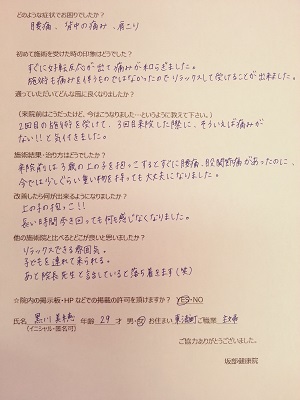 どのような症状でお困りでしたか？
腰痛、背中の痛み、肩こり
初めて施術を受けた時の印象はどうでした？
すぐに好転反応が出て痛みが和らぎました。
施術も痛みを伴うものではなかったのでリラックスして受けることが出来ました。
通っていただいてどんな風に良くなりましたか？
（来院前はこうだったけど、今はこうなりました…というように教えて下さい。）
2回目の施術を受けて、3回目来院した際に、そういえば痛みが
ない!!と気付きました。
施術結果・治り方はどうでしたか？
来院前は3歳の上の子を抱っこするとすぐに腰痛、股関節痛があったのに、
今では少しぐらい重い物を持っても大丈夫になりました。
改善したら何が出来るようになりましたか？
上の子の抱っこ!!
長い時間歩き回っても何も感じなくなりました。
他の施術院と比べるとどこが良いと思いましたか？
リラックスできる雰囲気。
子どもを連れて来られる。
あと院長先生と話していると落ち着きます(笑)
☆院内の掲示板・HPなどでの掲載の許可を頂けますか？ YES・NO
氏名 黒川 年齢 29才 男・女 お住まい 東浦町 ご職業 主婦
(イニシャル・匿名可)
ご協力ありがとうございました。
坂部健康院